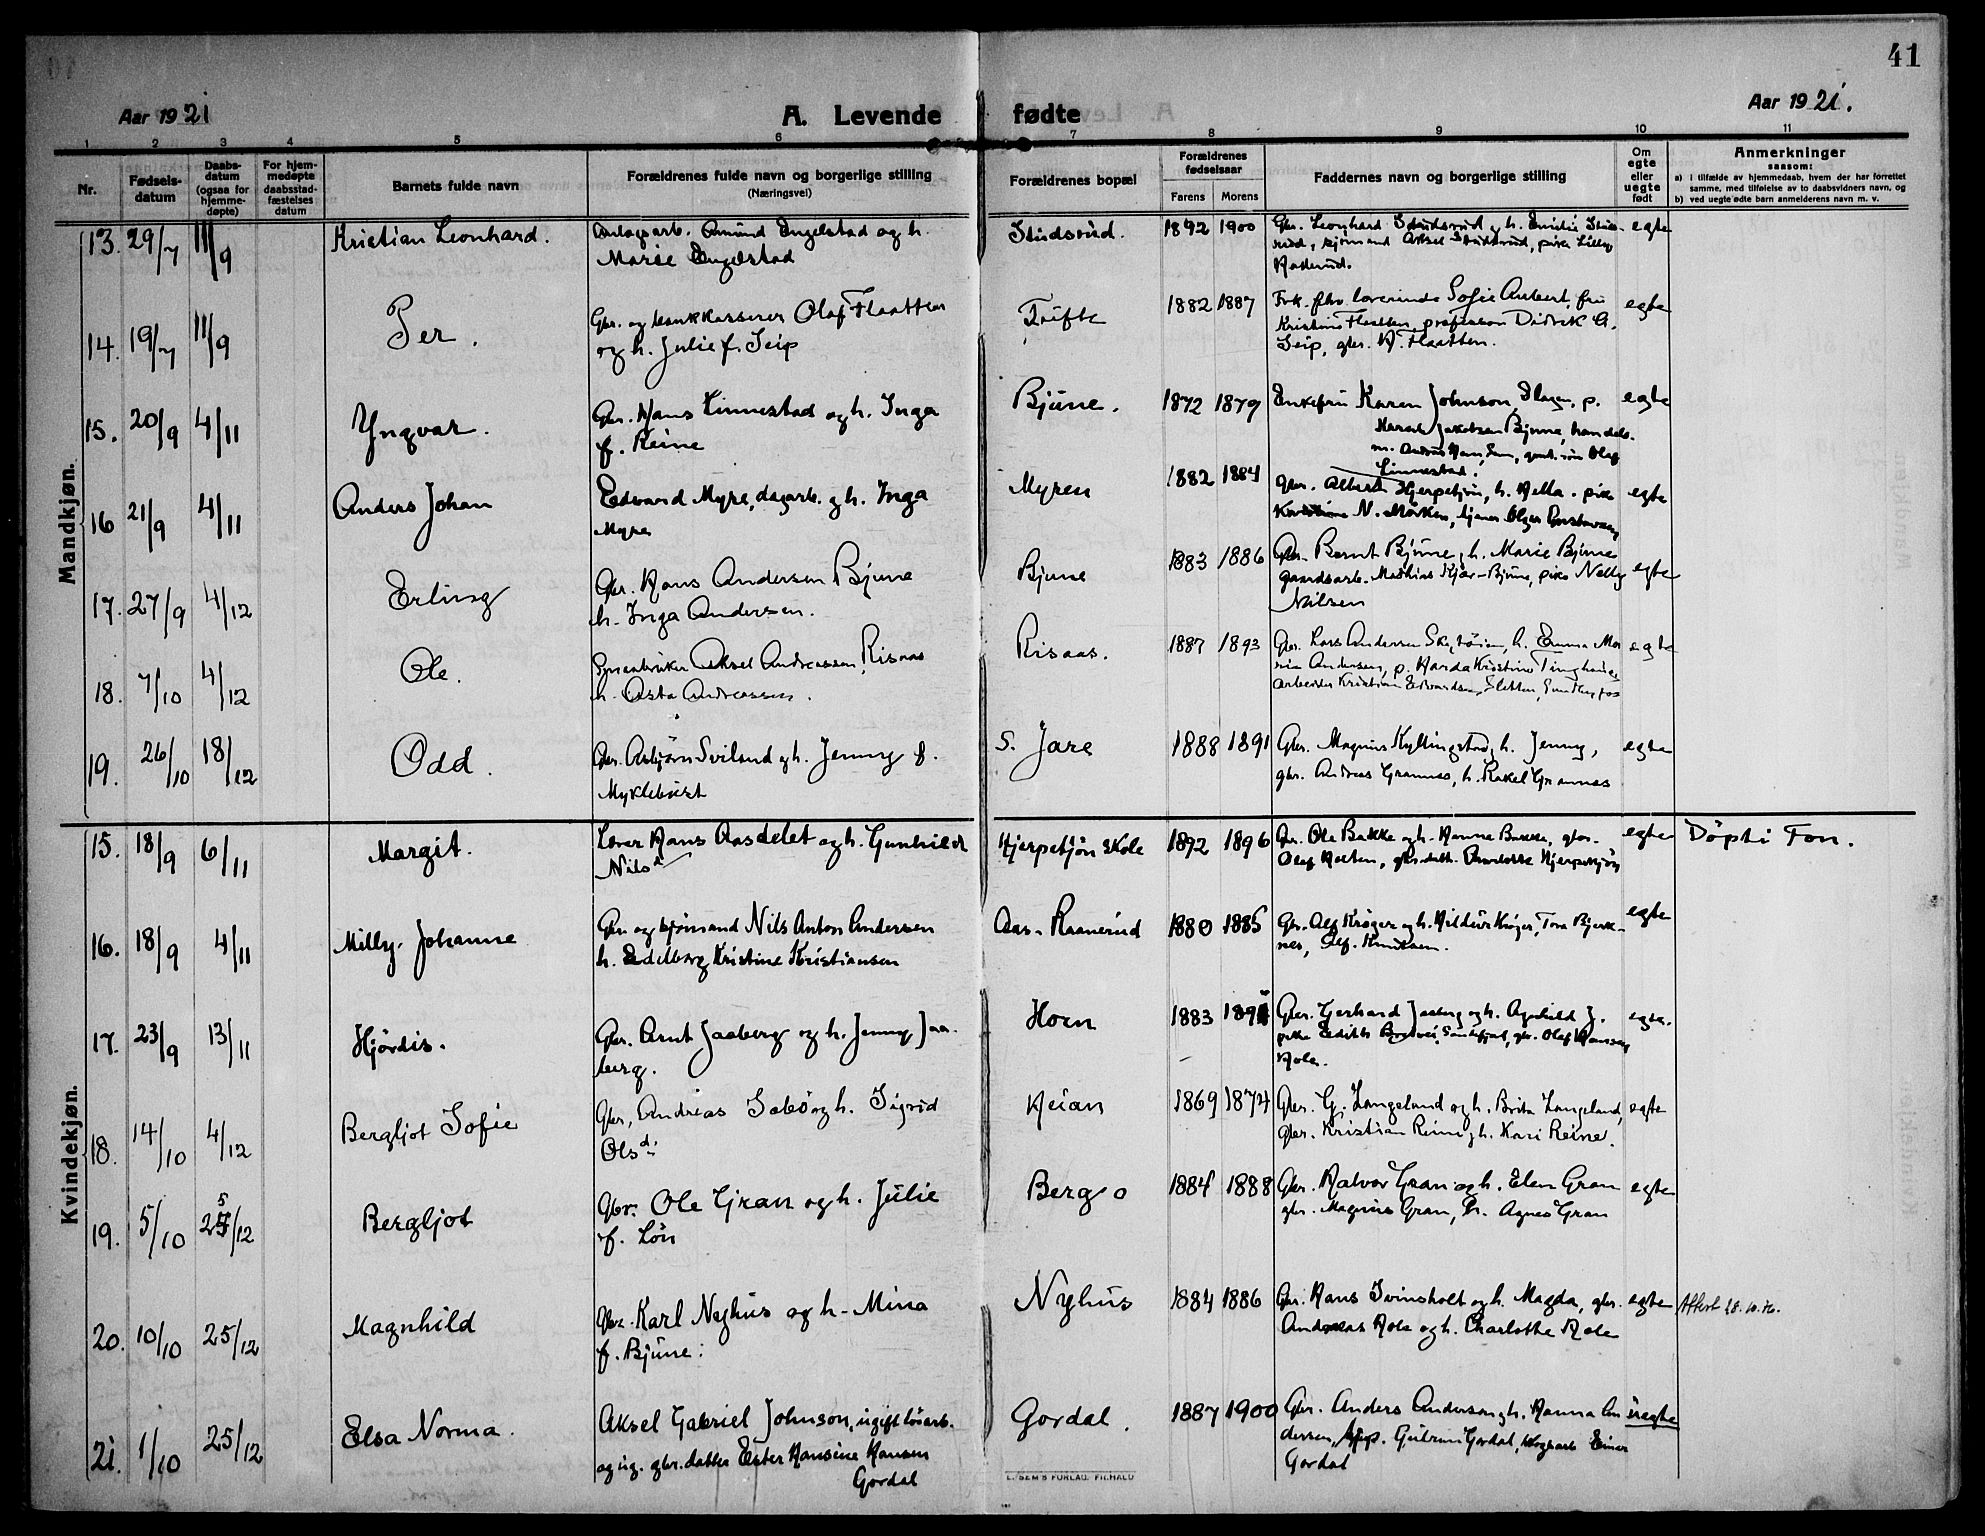 41
Aar 1921
A. Levende fødte
Aar 1921.
1 2 3 4 5 6 7 8 9 10 11
Nr.
Fødsels-
datum
Daabs-
datum
(ogsaa for
hjemme-
døpte)
For hjem-
medøpte
daabsstad-
fæstelses
datum
Barnets fulde navn
Forældrenes fulde navn og borgerlige stilling
(Næringsvei)
Forældrenes bopæl
Forældrenes
fødselsaar
Farens Morens
Faddernes navn og borgerlige stilling
Om
egte
eller
uegte
født
Anmerkninger
saasom:
a) i tilfælde av hjemmedaab, hvem der har forrettet
samme, med tilføielse av to daabsvidners navn, og
b) ved uegte fødte barn anmelderens navn m. v.
Mandkjøn.
13. 29/7 11/9 Kristian Leonhard. Anlagsarb. Amund Engelstad og h.
Marie Engelstad
Studsrud. 1892 1900 Gbr. Leonhard Studsrud og h. Emilie Studs-
rud, sjømand Aksel Studsrud, pike Lilly
egte
14. 19/7 11/9 Per. Gbr. og bankkasserer Olaf Flaatten
og h. Julie f. Seip
Tufte 1882 1887 Frk. fhv. lærerinde Sofie Aubert, fru
Kristine Flaatten, professor Didrik A.
Seip, gbr. K. Flaatten.
egte
15. 20/9 4/11 Yngvar. Gbr. Hans Linnestad og h. Inga
f. Reine
Bjune. 1872 1879 Enkefru Karen Johnson, p.
Jakobsen Bjune, handels-
m. Olaf
Linnestad.
egte
16 21/9 4/11 Anders Johan Edvard Myre, dagarb. og h. Inga
Myre
Myren 1882 1884 Gbr. Albert Hjerpetjøn, h. Hella. pike
N. Morken, tjener
egte
17. 27/9 4/12 Erling Gbr. Hans Andersen Bjune
h. Inga Andersen.
Bjune 1883 1886 Gbr. Bernt Bjune og h. Marie Bjune
gaardsarb. Mathias Kjær-Bjune, pike Nelly
Nilsen
egte
18. 7/10 4/12 Ole. Aksel Andreassen Risaas
h. Asta Andreassen.
Risaas. 1887 1893 Gbr. Lars Andersen h. Emma Ma-
rie Andersen, p. Kristine
arbeider Kristian Edvardsen, Sletten,
egte
19. 26/10 18/12 Odd. Gbr. Asbjørn Sviland og h. Jenny f.
Myklebust
S. Jare 1888 1891 Gbr. Magnus Kyllingstad og h. Jenny,
gbr. Andreas Grannes, h. Rakel Grannes
egte
Kvindekjøn.
15. 18/9 6/11 Margit. Lærer Hans Aasdelet og h. Gunhild
Nilsd.
Hjerpetjøn Skole 1892 1896 Gbr. Ole Bakke og h. Hanna Bakke, gbr.
Olaf Holten, gbr.datt. Hjerpetjøn
egte Døpt i Fon.
16. 18/9 4/11 Milly Johanne Gbr. og sjømand Nils Anton Andersen
h. Edelborg Kristine Kristiansen
Aas-Ramerud 1880 1885 Gbr. Alf Krøger og h. Hildur Krøger, Tora Bjerk-
nes, Alf. Knudsen.
egte
17. 23/9 13/11 Hjørdis. Gbr. Arnt Jaaberg og h. Jenny Jaa-
berg.
Horn 1883 Gbr. Gerhard Jaaberg og h. Agnhild J.
pike Edith Sandefjord, gbr. Olaf Hansen
Hole.
egte.
18. 14/10 4/12 Bergljot Sofie Gbr. Andreas Sabø og h. Sigrid
Olsd.
Heian 1869 1874 Gbr. G. Langeland og h. Brita Langeland,
gbr. Kristian Reine og h. Kari Reine.
egte
19. 5/10 25/12 Bergljot Gbr. Ole Gran og h. Julie
f. Løn
Berg 1884 1888 Gbr. Halvor Gran og h. Elen Gran
gbr. Magnus Gran, h. Agnes Gran
egte
20. 10/10 25/12 Magnhild Gbr. Karl Nyhus og h. Mina
f. Bjune.
Nyhus 1884 1886 Gbr. Hans Svinsholt og h. Magda, gbr.
Andreas Hole og h. Charlotte Hole
egte Attest
21. 1/10 25/12 Elsa Norma. Aksel Gabriel Johnson, ugift løsarb.
og ug. gbr.datter Ester Hansine Hansen
Gordal
Gordal. 1887 1900 Gbr. Anders Andersen og h. Hanna An-
dersen, Gudrun Gordal, Einar
Gordal
uegte